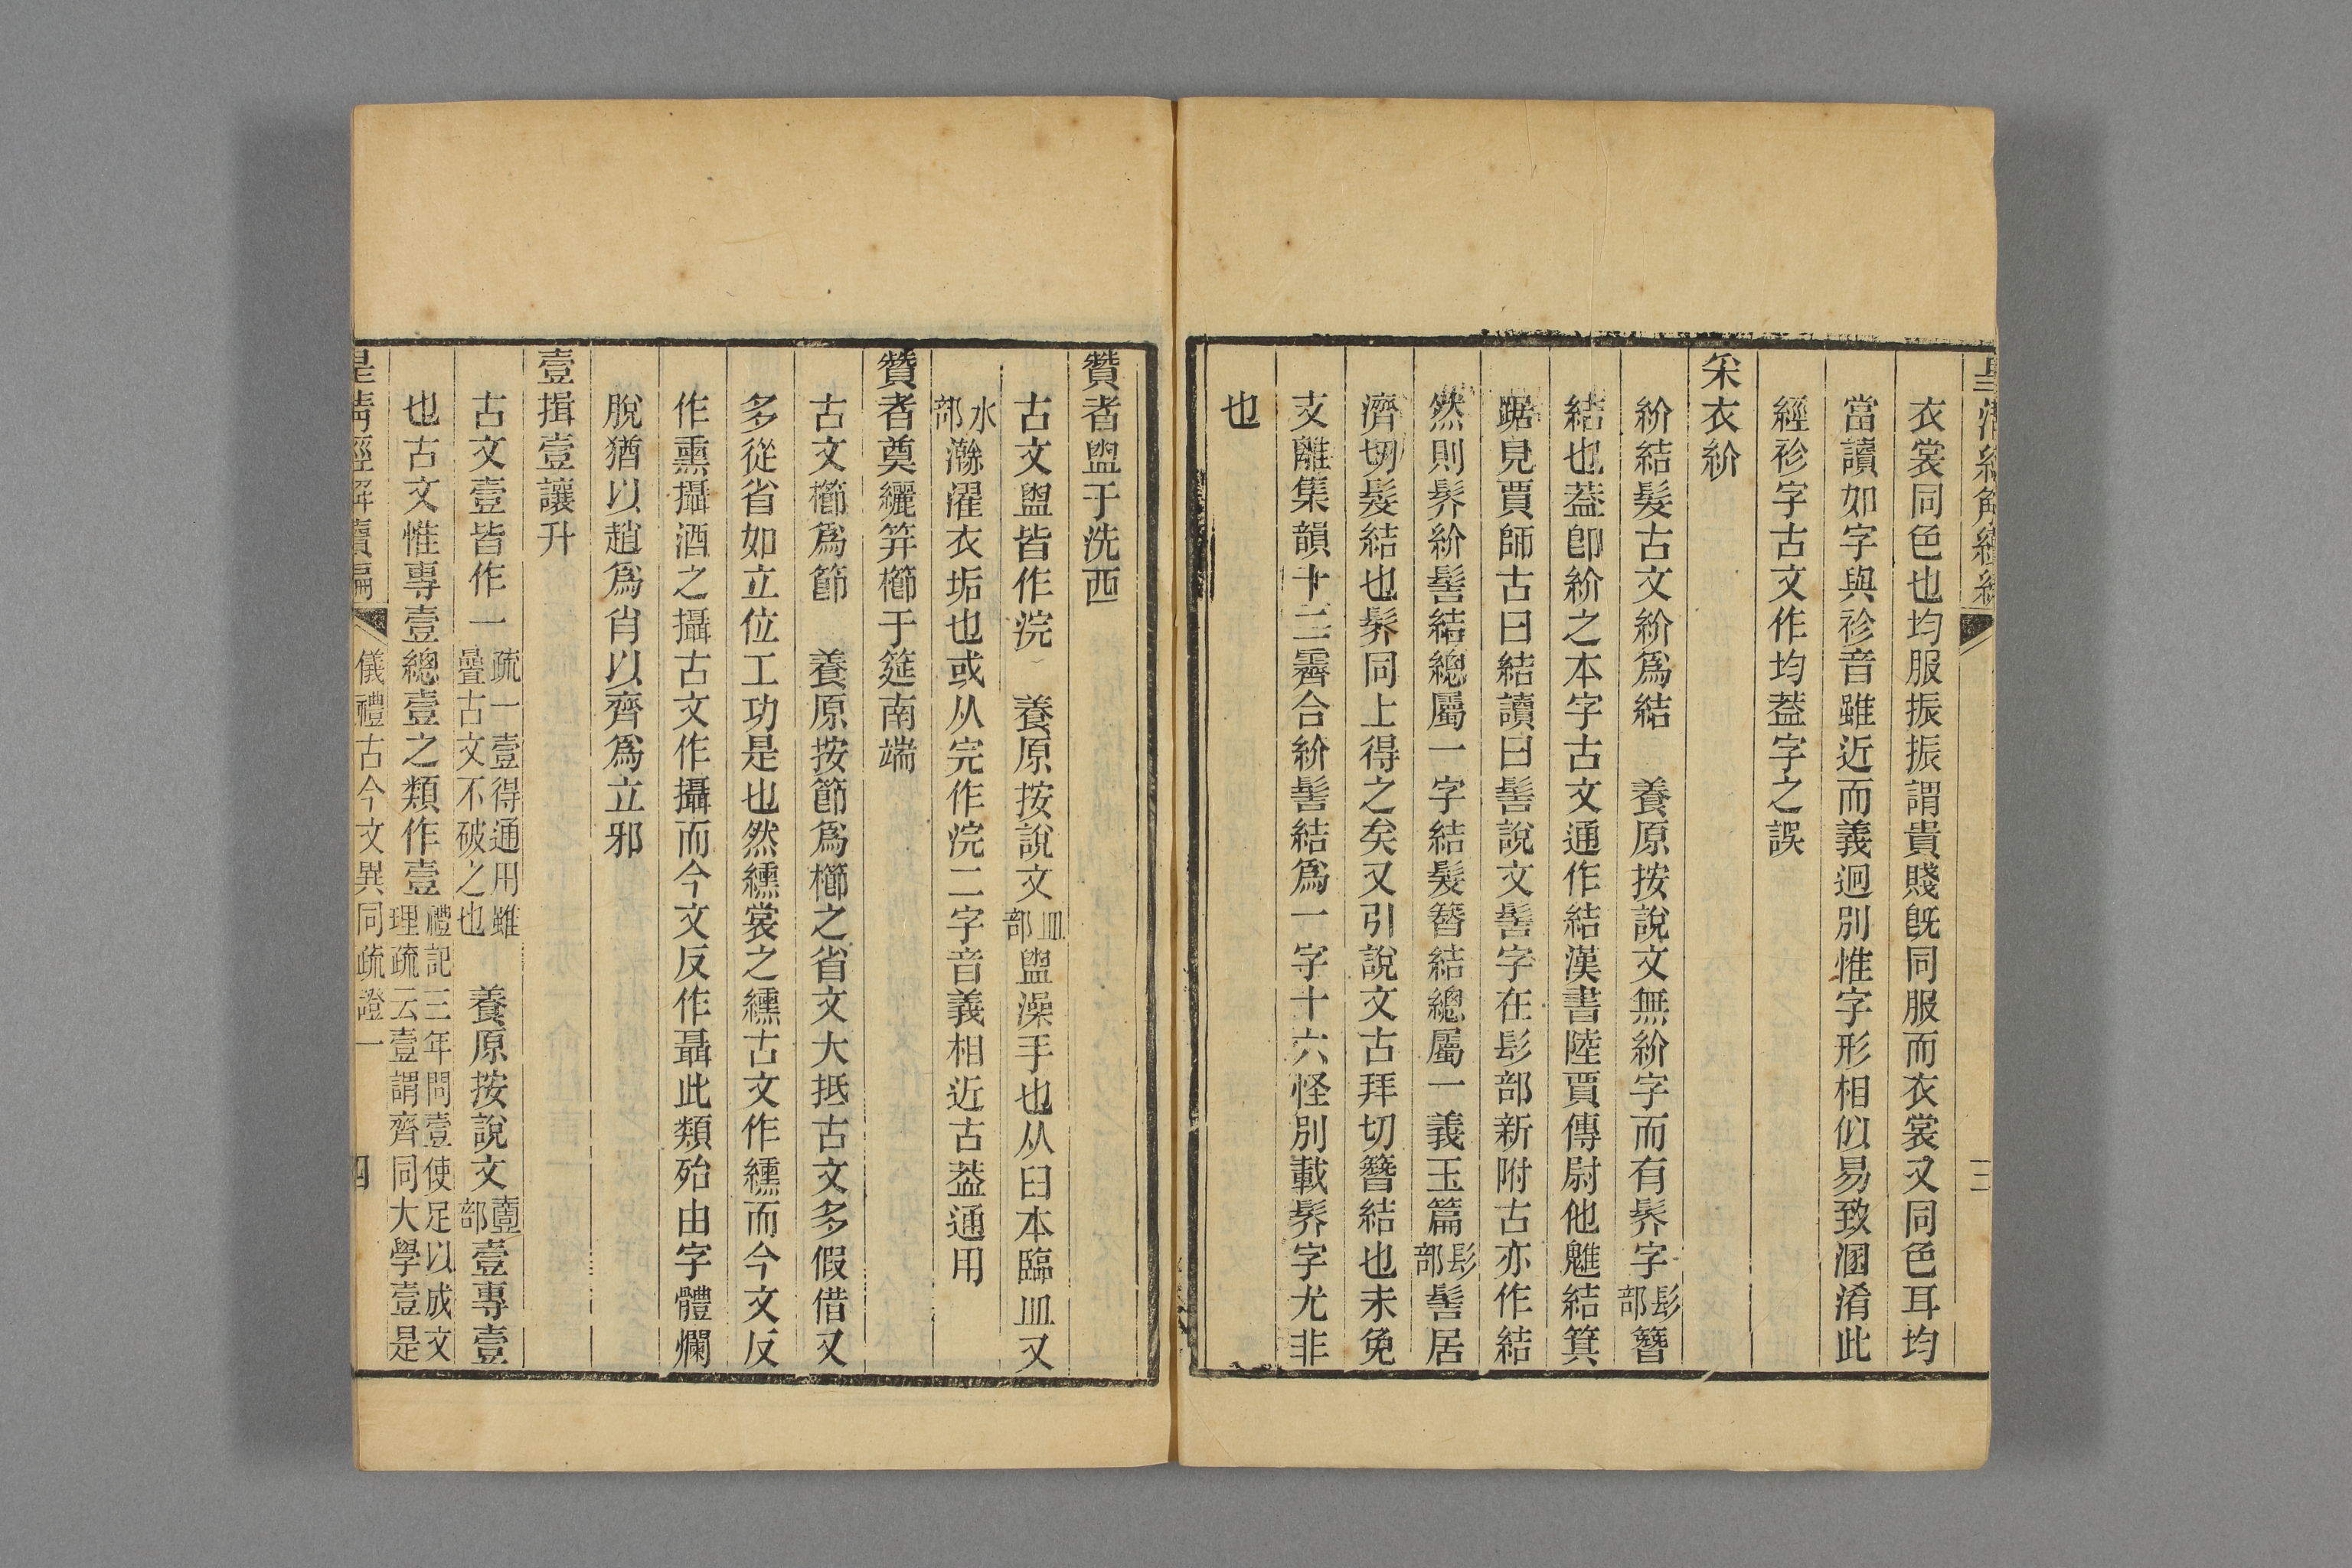 皇清經解續編 三
衣裳同色也均服振振謂貴賤旣同服而衣裳又同色耳均
當讀如字與袗音雖近而義迥別惟字形相似易致溷淆此
經袗字古文作均葢字之誤
采衣紒
紒結髮古文紒爲結 養原按說文無紒字而有髻字髟部簪
結也葢卽紒之本字古文通作結漢書陸賈傳尉他魋結箕
踞見賈師古曰結讀曰髻說文髻字在髟部新附古亦作結
然則髻紒髻結總屬一字結髮簪結總屬一義玉篇髟部髻居
濟切髮結也髻同上得之矣又引說文古拜切簪結也未免
支離集韻十二霽合紒髻結爲一字十六怪別載髻字尤非
也
贊者盥于洗西
古文盥皆作浣 養原按說文皿部盥澡手也从臼水臨皿又
水部瀚濯衣垢也或从完作浣二字音義相近古葢通用
贊者奠纚笄櫛于筵南端
古文櫛爲節 養原按節爲櫛之省文大抵古文多假借又
多從省如立位工功是也然纁裳之纁古文作纁而今文反
作熏攝酒之攝古文作攝而今文反作聶此類殆由字體爛
脫猶以趙爲肖以齊爲立邪
壹揖壹讓升
古文壹皆作一疏一壹得通用雖疊古文不破之也 養原按說文壹部壹專壹
也古文惟專壹總壹之類作壹禮記三年問壹使足以成文理疏云壹謂齊同大學壹是
皇清經解續編 儀禮古今文異同疏證一 四